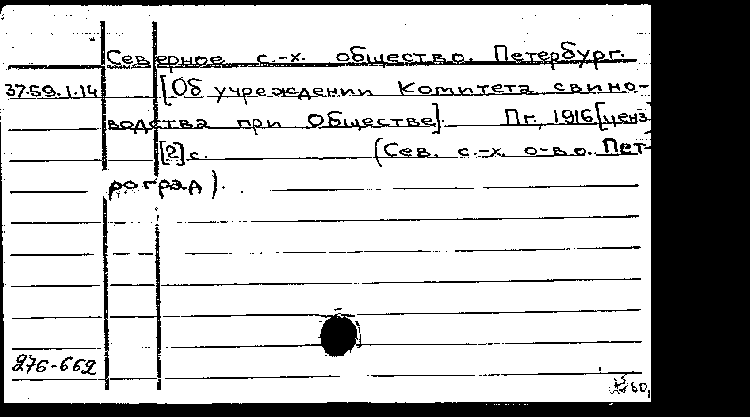 Северное с.-х. общество. Петербург.
37.59.1.14 [Об учреждении Комитета свино-
водства при Обществе]. Пг., 1916 [ценз.]
[2] с. (Сев. с.-х. о-во. Пет-
роград).
276-662